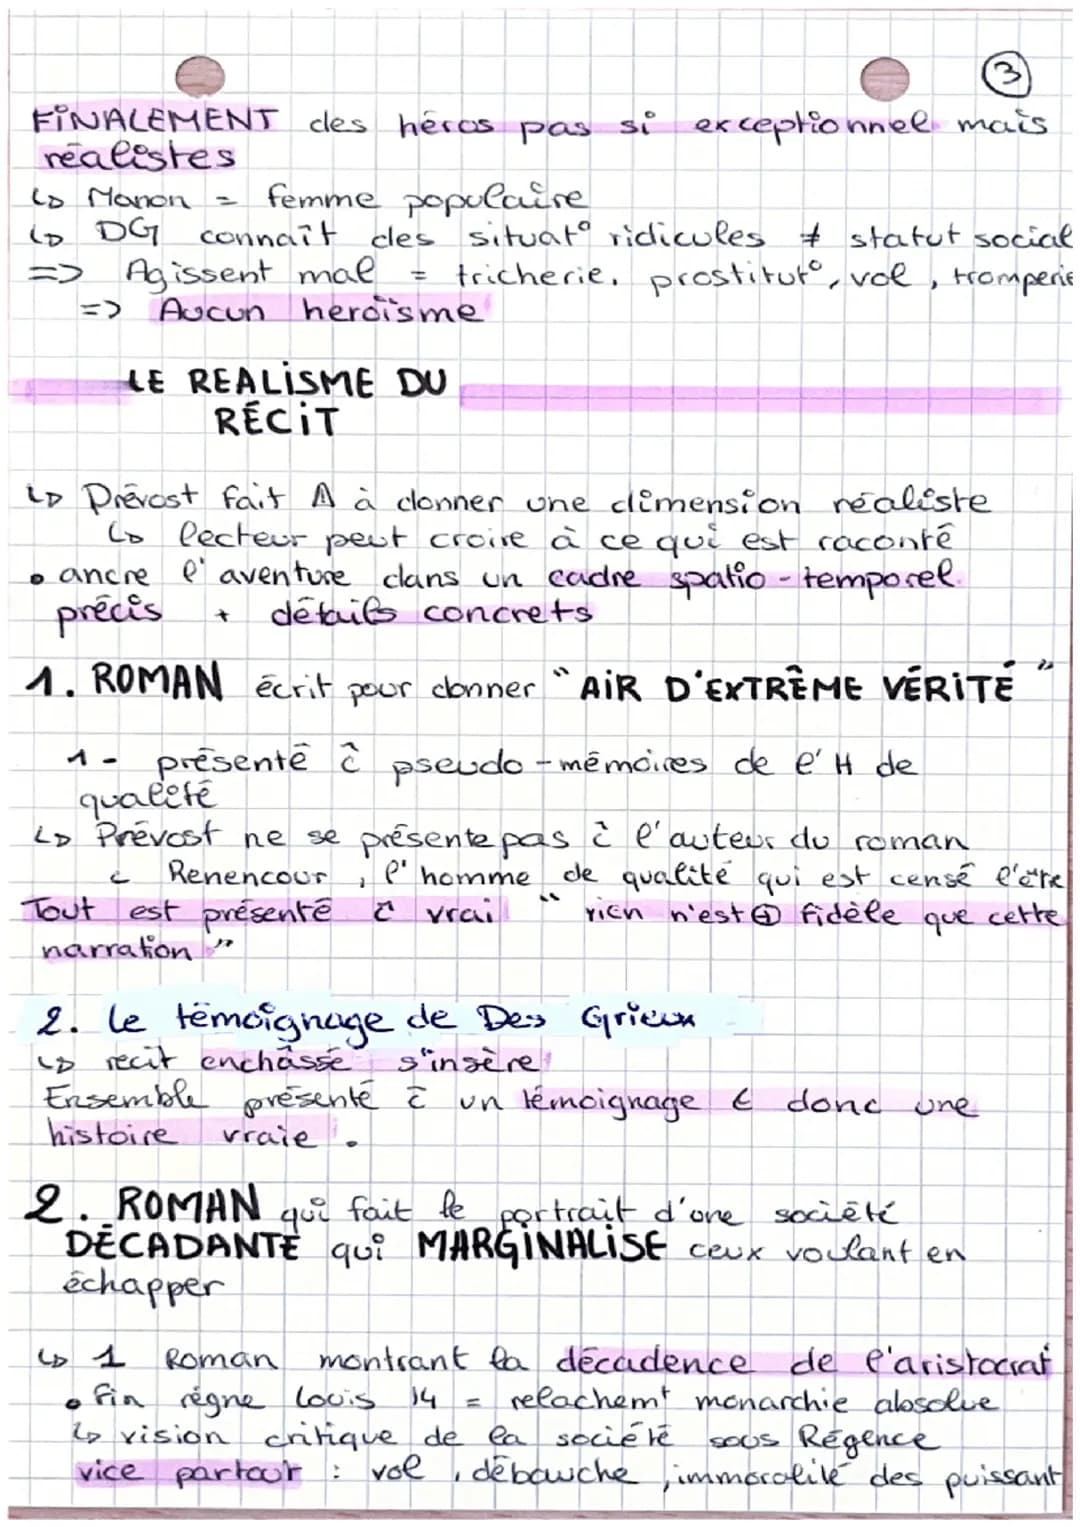 3
FINALEMENT des héros pas si exceptionnel mais
réalistes
↳ Manon = femme populaire
↳ DG connaît des situat° ridicules ≠ statut social
=> Agissent mal = tricherie, prostitut°, vol, tromperie
=> Aucun heroïsme
LE REALISME DU
RÉCIT
↳ Prévost fait à donner une dimension réaliste
↳ lecteur peut croire à ce qui est raconté
• ancre l'aventure dans un cadre spatio-temporel
précis + détails concrets
1. ROMAN écrit pour donner "AIR D'EXTRÊME VÉRITÉ"
1- présenté c̄ pseudo-mémoires de l'H de
qualité
↳ Prévost ne se présente pas c̄ l'auteur du roman
c Renencour, l'homme de qualité qui est censé l'être
Tout est présenté c̄ vrai "rien n'est ⊕ fidèle que cette
narration"
2. le témoignage de Des Grieux
↳ recit enchâssé s'insère
Ensemble présenté c̄ un témoignage € donc une
histoire vraie.
2. ROMAN qui fait le portrait d'une société
DÉCADANTE qui MARGINALISE ceux voulant en
échapper
↳ 1 Roman montrant la décadence de l'aristocrat
• fin règne Louis 14 = relachemt monarchie absolue
↳ vision critique de la société sous Régence
vice partout : vol, débauche, immoralité des puissant